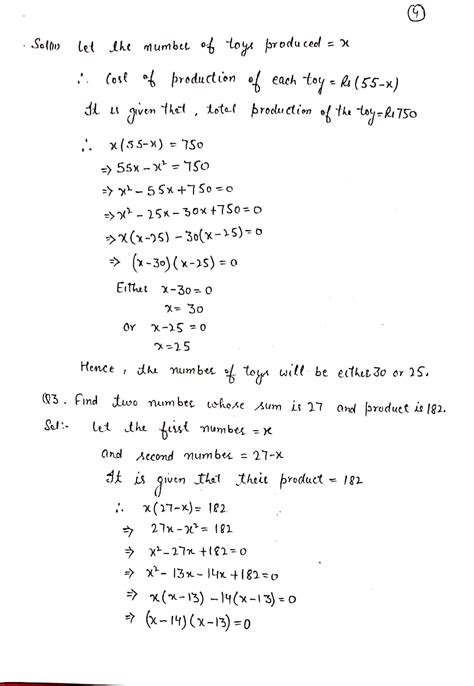 (4)
Sol(ii) Let the number of toys produced = x
∴ Cost of production of each toy = Rs (55-x)
It is given that, total production of the toy = Rs 750
∴ x(55-x) = 750
⇒ 55x - x² = 750
⇒ x² - 55x + 750 = 0
⇒ x² - 25x - 30x + 750 = 0
⇒ x(x-25) - 30(x-25) = 0
⇒ (x-30)(x-25) = 0
Either x-30 = 0
x = 30
or x-25 = 0
x = 25
Hence, the number of toys will be either 30 or 25.
Q3. Find two number whose sum is 27 and product is 182.
Sol:- Let the first number = x
and second number = 27-x
It is given that their product = 182
∴ x(27-x) = 182
⇒ 27x - x² = 182
⇒ x² - 27x + 182 = 0
⇒ x² - 13x - 14x + 182 = 0
⇒ x(x-13) - 14(x-13) = 0
⇒ (x-14)(x-13) = 0